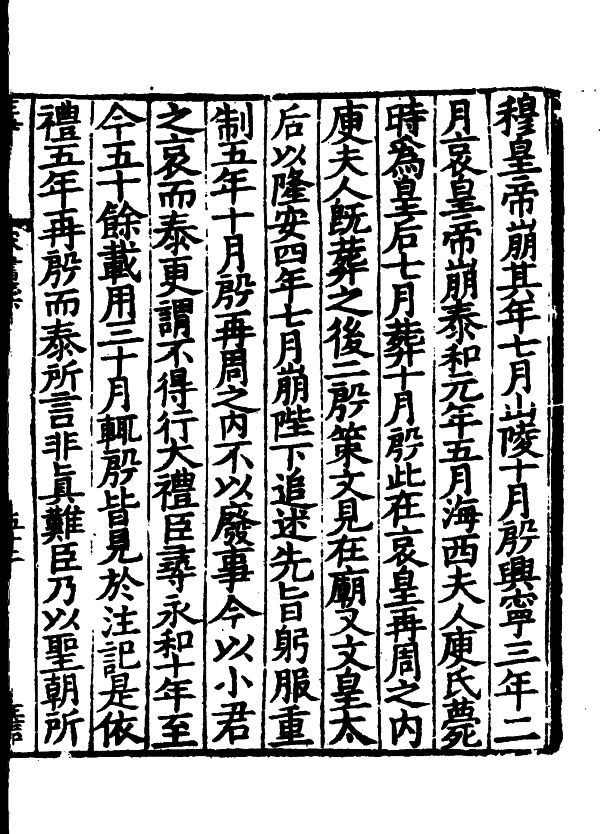 穆皇帝崩其年七月山陵十月殷興寧三年二
月哀皇帝崩泰和元年五月海西夫人庾氏薨
時為皇后七月葬十月殷此在哀皇再周之內
庾夫人既葬之後二殷策文見在廟又文皇太
后以隆安四年七月崩陛下追述先旨躬服重
制五年十月殷再周之內不以廢事今以小君
之哀而泰更謂不得行大禮臣尋永和十年至
今五十餘載用三十月輒殷皆見於注記是依
禮五年再殷而泰所言非真難臣乃以聖朝所